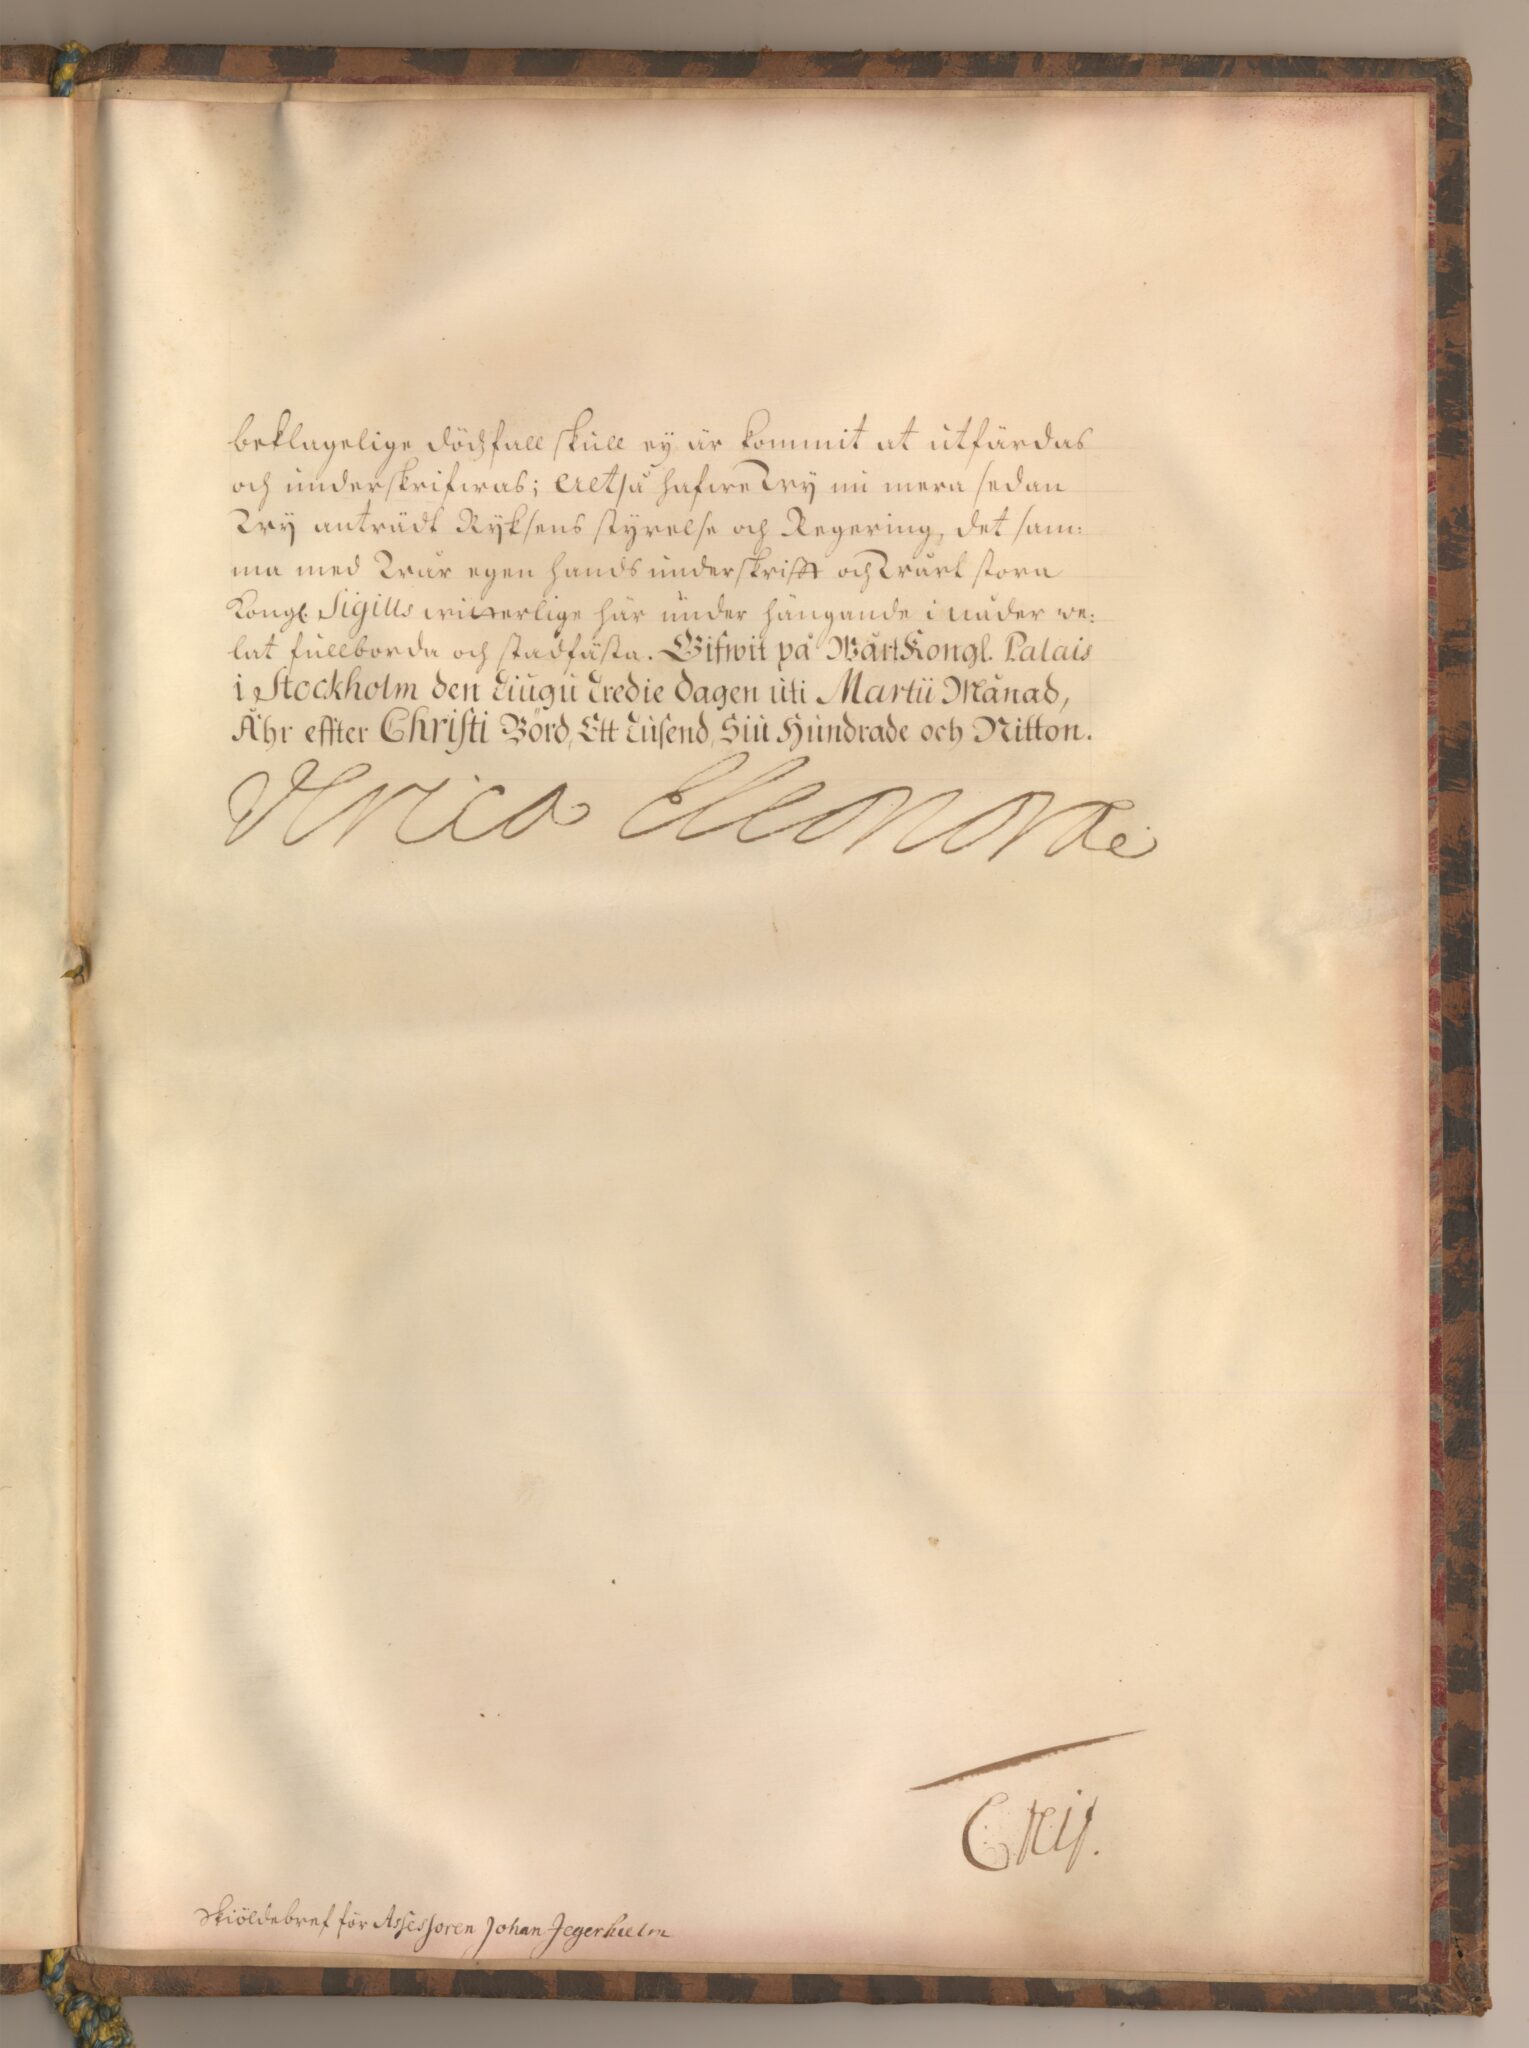 beklagelige dödzfall skull ey är kommit at utfärdas
och underskrifwas; Altså hafwe Wy nu mera sedan
Wy anträdt Ryksens styrelse och Regering, det sam:
ma med Wår egen hands underskrifft och Wårt stora
Kongl. Sigills witterlige här under hängande i nåder we:
lat fullborda och stadfästa. Gifwit på Wårt Kongl. Palais
i Stockholm den Tiugu Tredie dagen uti Martii Månad,
Åhr effter Christi Börd, Ett Tusend, Siu Hundrade och Nitton.
Vlrica Eleonora
Skiöldebref för Assessoren Johan Jegerhielm